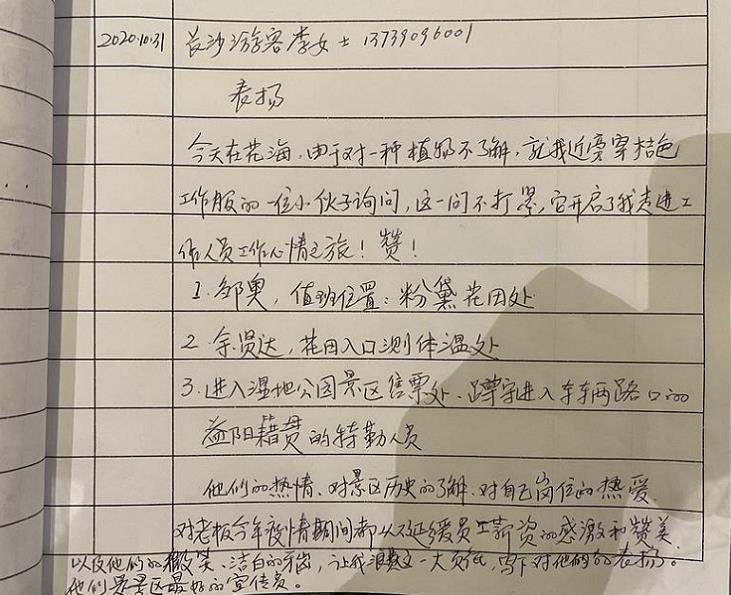 2020.10.31 长沙游客李女士 13739096001
表扬
今天在花海,由于对一种植物不了解,就找近旁穿桔色
工作服的一位小伙子询问,这一问不打紧,它开启了我走进工
作人员工作心情之旅!赞!
1.邹奥,值班位置:粉黛花田处
2.余贤达,花田入口测体温处
3.进入湿地公园景区售票处、蹲守进入车辆路口的
益阳籍贯的特勤人员
他们的热情、对景区历史的了解、对自己岗位的热爱、
对老板今年疫情期间都从不延缓员工薪资的感激和赞美
以及他们的微笑、洁白的牙齿,让我浪费一大页纸,写下对他们的表扬。
他们是景区最好的宣传员。